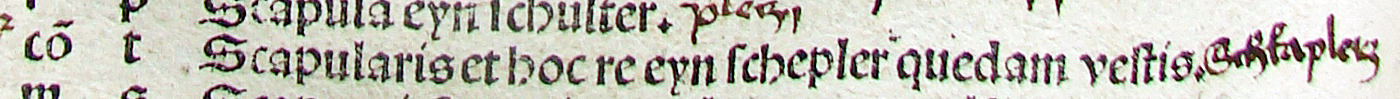 Scapula eyn ſchulter.
cō t Scapularis et hoc re eyn ſchepler quedam veſtis.